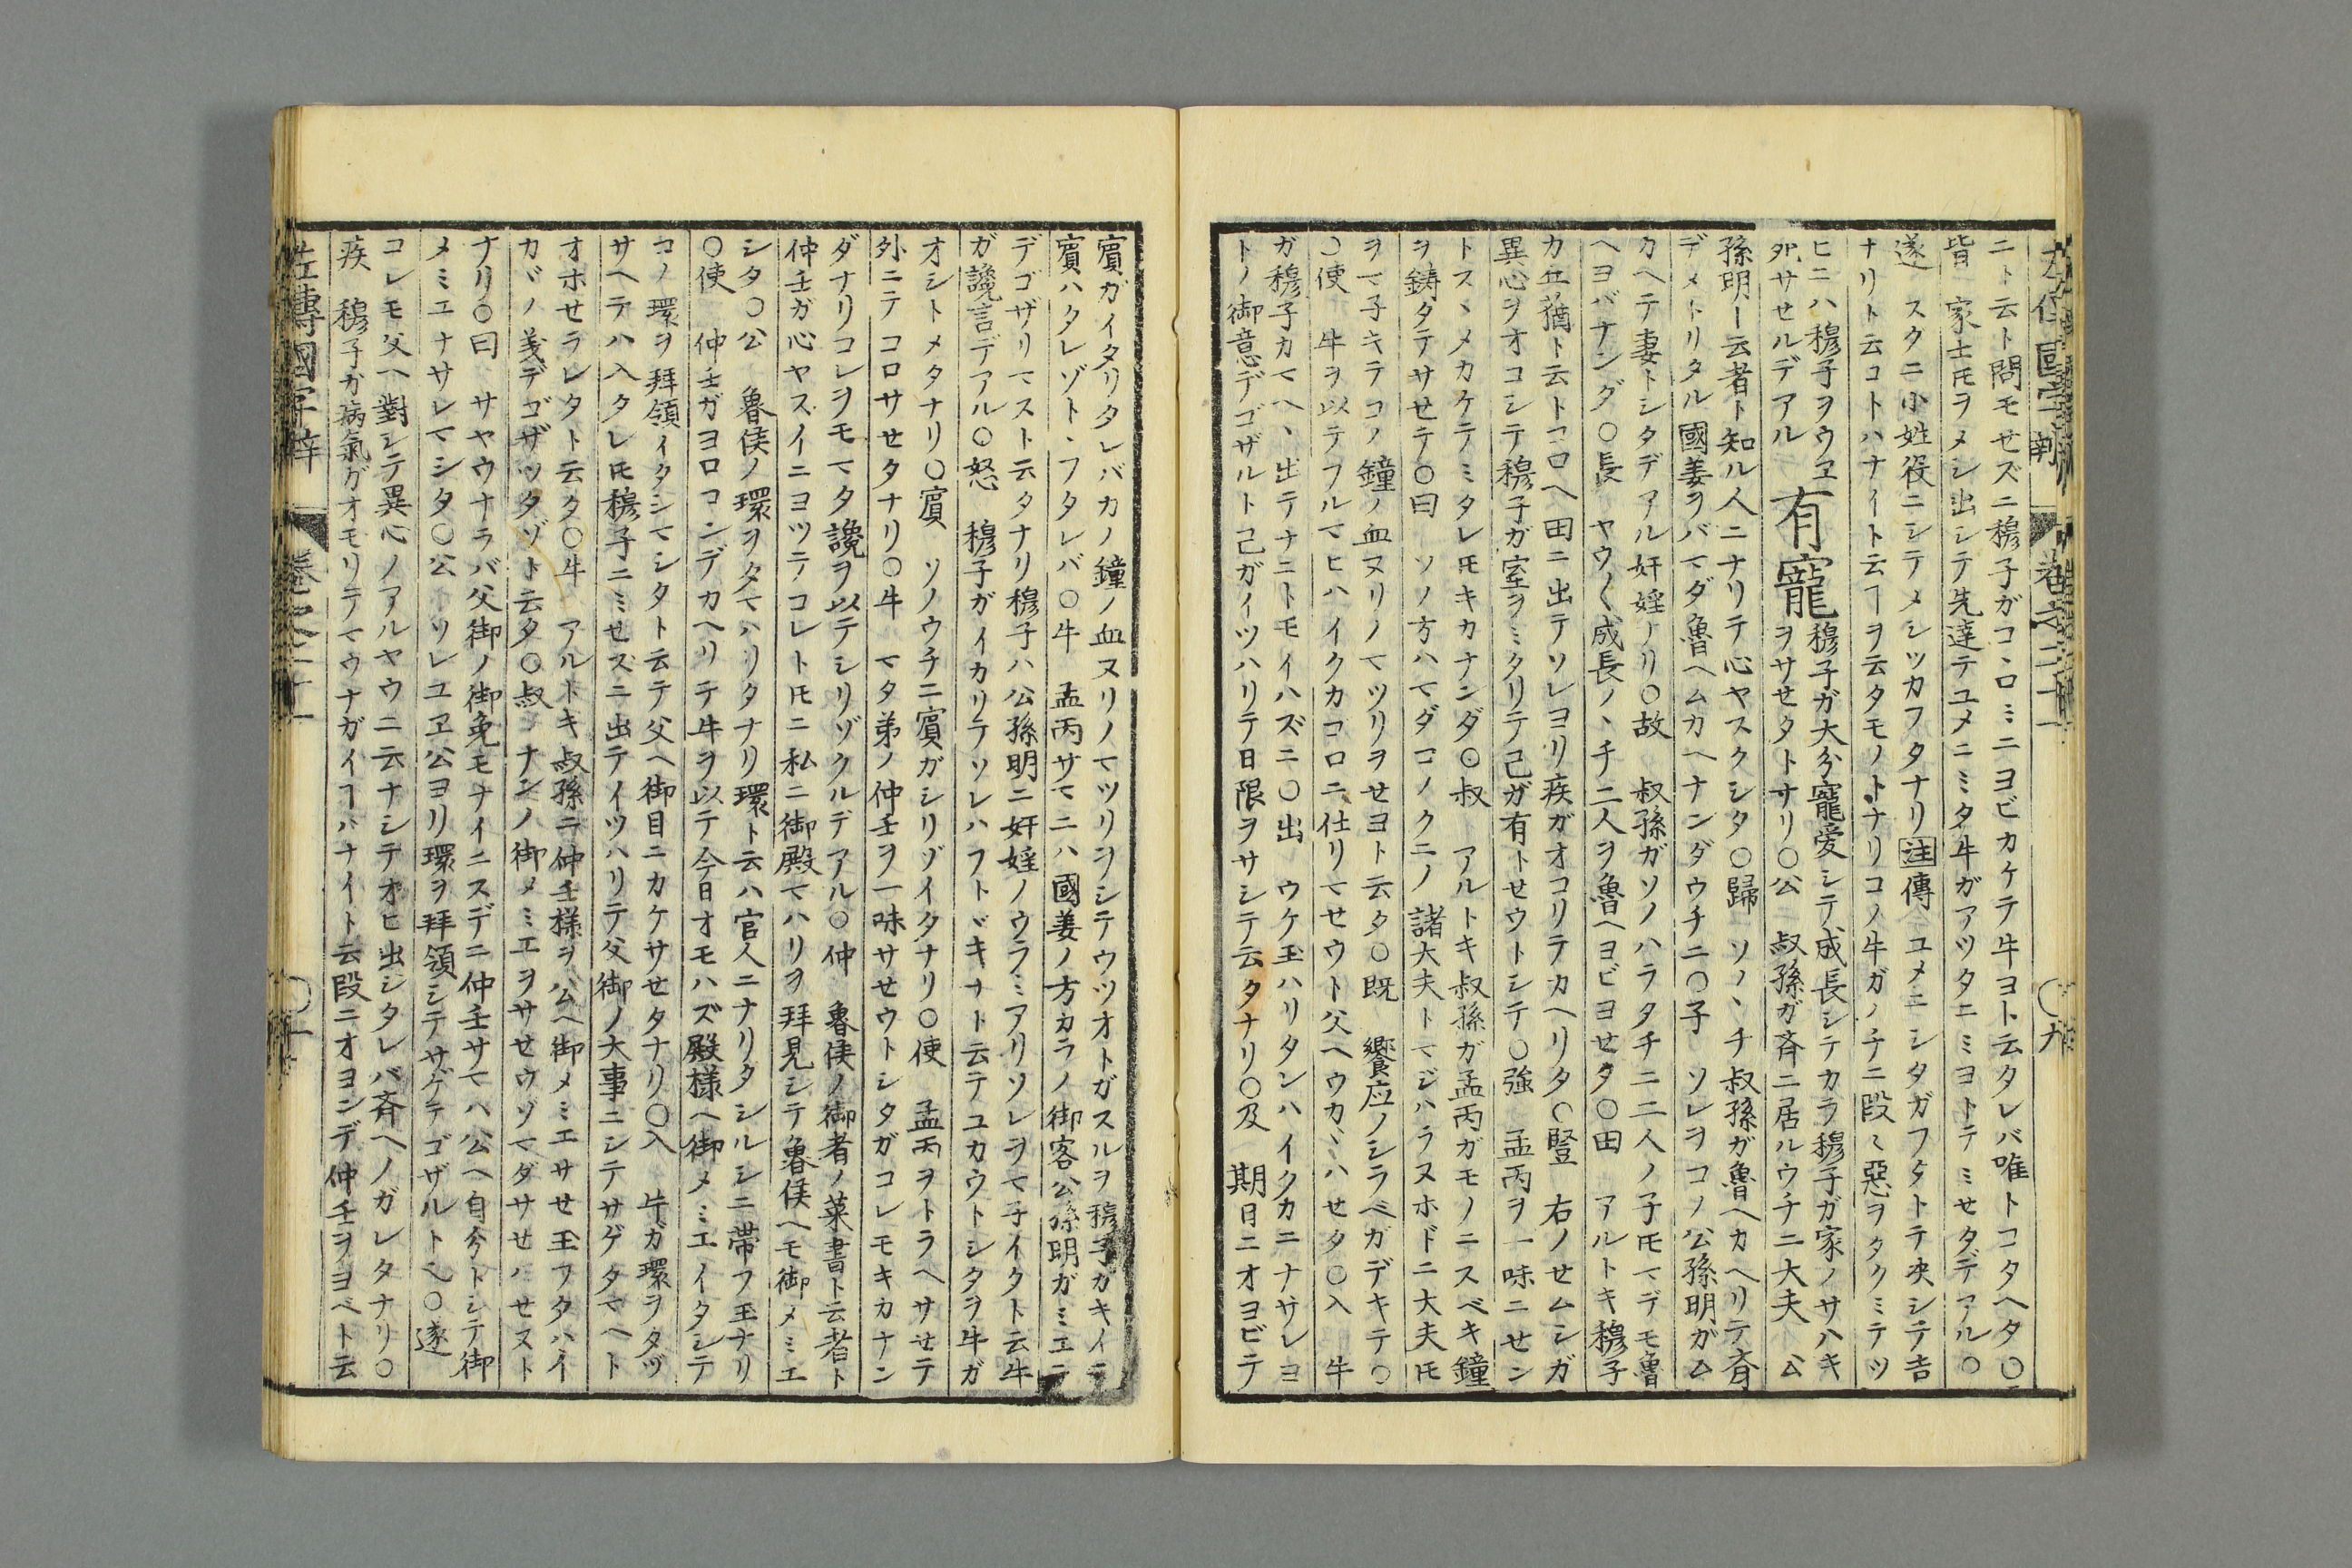 ニト云ト問モセズニ穆子ガコヽロミニヨビカケテ牛ヨト云タレバ唯トコタヘタ〇
皆 家士𪜈ヲメシ出シテ先達テユメニミタ牛ガアツタニミヨトテミセタデアル〇
遂 スクニ小姓役ニシテメシツカフタナリ注傳 ユメニシタガフタトテ決シテ吉
ナリト云コトハナイト云ヿヲ云タモノトナリコノ牛ガノチニ段〻惡ヲタクミテツ
ヒニハ穆子ヲウヱ
死サセルデアル
有寵
穆子ガ大分寵愛シテ成長シテカラ穆子ガ家ノサハキ
ヲサセタトナリ〇公 叔孫ガ斉ニ居ルウチニ大夫 公
孫明ト云者ト知ル人ニナリテ心ヤスクシタ〇歸 ソノヽチ叔孫ガ魯ヘカヘリテ斉
デメトリタル國姜ヲバマダ魯ヘムカヘナンダウチニ〇子 ソレヲコノ公孫明ガム
カヘテ妻トシタデアル奸婬ナリ〇故 叔孫ガソノハラタチニ二人ノ子𪜈マデモ魯
ヘヨバナンダ〇長 ヤウ〱成長ノヽチ二人ヲ魯ヘヨビヨセタ〇田 アルトキ穆子
カ丘蕕ト云トコロヘ田ニ出テソレヨリ疾ガオコリテカヘリタ〇豎 右ノセムシガ
異心ヲオコシテ穆子ガ室ヲミクリテ己ガ有トセウトシテ〇強 孟丙ヲ一味ニセン
トスヽメカケテミタレ𪜈キカナンダ〇叔 アルトキ叔孫ガ孟丙ガモノニスベキ鐘
ヲ鋳タテサセテ〇曰 ソノ方ハマダコノクニノ諸大夫トマジハラヌホドニ大夫𪜈
ヲマ子キテコノ鐘ノ血ヌリノマツリヲセヨト云タ〇既 饗応ノシラベガデキテ〇
〇使 牛ヲ以テフルマヒハイクカコロニ仕リマセウト父ヘウカヾハセタ〇入 牛
ガ穆子カマヘヽ出テナニトモイハズニ〇出 ウケ玉ハリタンハイクカニナサレヨ
トノ御意デゴザルト己ガイツハリテ日限ヲサシテ云タナリ〇及 期日ニオヨビテ
賔ガイタリタレバカノ鐘ノ血ヌリノマツリヲシテウツオトガスルヲ穆子ガキイテ
賔ハタレゾトヽフタレバ〇牛 孟丙サマニハ國姜ノ方カラノ御客公孫明ガミエテ
デゴザリマスト云タナリ穆子ハ公孫明ニ奸婬ノウラミアリソレヲマ子イクト云牛
ガ讒言デアル〇怒 穆子ガイカリテソレハフトヾキナト云テユカウトシタヲ牛ガ
オシトメタナリ〇賔 ソノウチニ賔ガシリゾイタナリ〇使 孟丙ヲトラヘサセテ
外ニテコロサセタナリ〇牛 マタ弟ノ仲壬ヲ一味サセウトシタガコレモキカナン
ダナリコレヲモマタ讒ヲ以テシリゾクルデアル〇仲 魯侯ノ御者ノ莱書ト云者ト
仲壬ガ心ヤスイニヨツテコレト𪜈ニ私ニ御殿マハリヲ拜見シテ魯侯ヘモ御メミエ
シタ〇公 魯侯ノ環ヲタマハリタナリ環ト云ハ官人ニナリタシルシニ帶フ玉ナリ
〇使 仲壬ガヨロコンデカヘリテ牛ヲ以テ今日オモハズ殿様ヘ御メミエイタシテ
コノ環ヲ拜領イタシマシタト云テ父ヘ御目ニカケサセタナリ〇入 牛ガ環ヲタヅ
サヘテハ入タレ𪜈穆子ニミセズニ出テイツハリテ父御ノ大事ニシテサゲタマヘト
オホセラレタト云タ〇牛 アルトキ叔孫ニ仲壬様ヲ公ヘ御メミエサセ玉フタハイ
カヾノ義デゴザツタゾト云タ〇叔 ナンノ御メミエヲサセウゾマダサセハセヌト
ナリ〇曰 サヤウナラバ父御ノ御免モナイニスデニ仲壬サマハ公ヘ自分トシテ御
メミエナサレマシタ〇公 ソレユヱ公ヨリ環ヲ拜領シテサゲテゴザルト也〇遂
コレモ父ヘ對シテ異心ノアルヤウニ云ナシテオヒ出シタレバ斉ヘノガレタナリ〇
疾 穆子ガ病氣ガオモリテマウナガイヿハナイト云段ニオヨンデ仲壬ヲヨベト云
左傳國字辯 巻之二十一